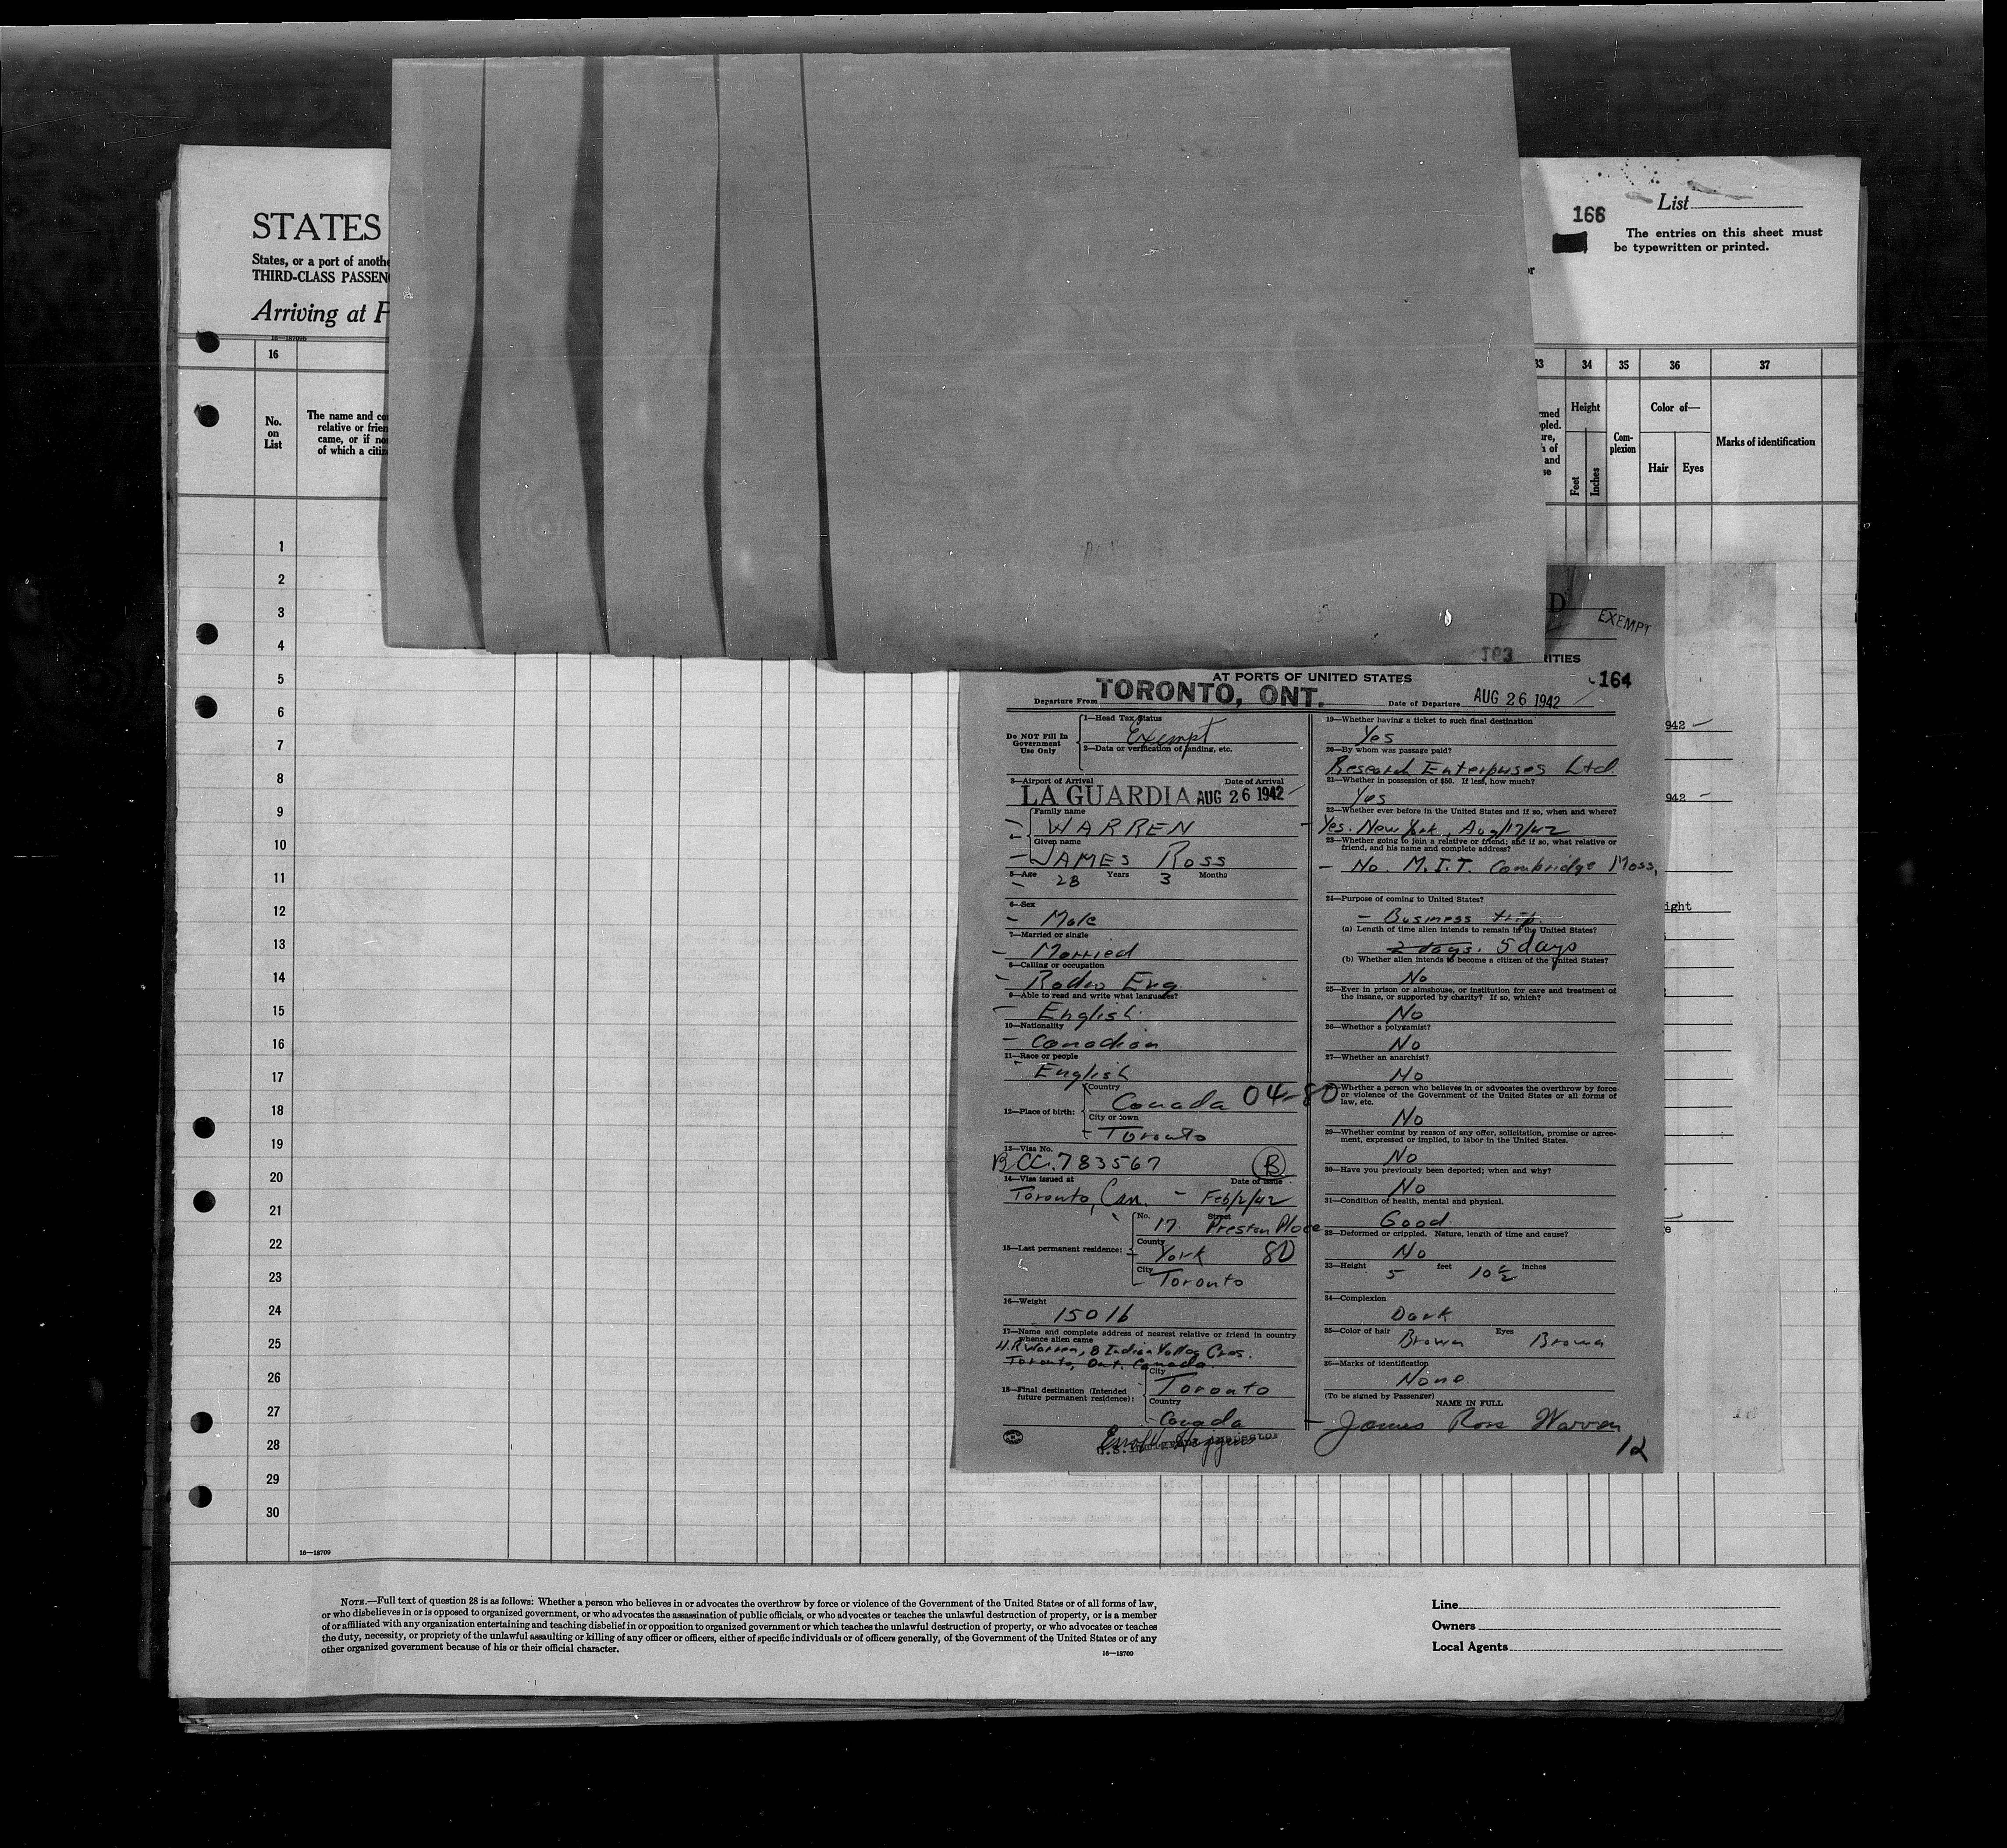 STATES
States, or a port of anothe
THIRD-CLASS PASSEN
Arriving at F
166
List
The entries on this sheet must
be typewritten or printed.
or
16—18709b
16
33
34
35
36
37
No.
on
List
The name and co
relative or frien
came, or if no
of which a citiz
Height
Feet
Inches
Com-
plexion
Color of—
Hair
Eyes
Marks of identification
1
2
3
4
5
6
7
8
9
10
11
12
13
14
15
16
17
18
19
20
21
22
23
24
25
26
27
28
29
30
16—18709
D
EXEMPT
163
RITIES
AT PORTS OF UNITED STATES
164
Departure From TORONTO, ONT.
Date of Departure AUG 26 1942
Do NOT Fill In
Government
Use Only
1—Head Tax Status
Exempt
2—Data or verification of landing, etc.
3—Airport of Arrival Date of Arrival
LA GUARDIA AUG 26 1942
Family name
WARREN
Given name
JAMES ROSS
5—Age 28 Years 3 Months
6—Sex
Male
7—Married or single
Married
8—Calling or occupation
Radio Eng.
9—Able to read and write what languages?
English
10—Nationality
Canadian
11—Race or people
English
12—Place of birth:
Country
Canada 04-80
City or town
Toronto
13—Visa No.
BCC. 783567 B
14—Visa issued at Date of issue
Toronto, Can. - Feb/2/42
15—Last permanent residence:
No. 17 Street Preston Place
County
York 80
City
Toronto
16—Weight
150 lb
17—Name and complete address of nearest relative or friend in country
whence alien came
H.R. Warren, 8 Indian Valley Cres.
Toronto, Ont. Canada.
18—Final destination (Intended
future permanent residence):
City
Toronto
Country
Canada
19—Whether having a ticket to such final destination
Yes
20—By whom was passage paid?
Research Enterprises Ltd.
21—Whether in possession of $50. If less, how much?
Yes
22—Whether ever before in the United States and if so, when and where?
Yes. New York, Aug/17/42
23—Whether going to join a relative or friend; and if so, what relative or
friend, and his name and complete address?
No. M.I.T. Cambridge Mass,
24—Purpose of coming to United States?
- Business trip.
(a) Length of time alien intends to remain in the United States?
2 days. 5 days
(b) Whether alien intends to become a citizen of the United States?
No
25—Ever in prison or almshouse, or institution for care and treatment of
the insane, or supported by charity? If so, which?
No
26—Whether a polygamist?
No
27—Whether an anarchist?
No
28—Whether a person who believes in or advocates the overthrow by force
or violence of the Government of the United States or all forms of
law, etc.
No
29—Whether coming by reason of any offer, solicitation, promise or agree-
ment, expressed or implied, to labor in the United States.
No
30—Have you previously been deported; when and why?
No
31—Condition of health, mental and physical.
Good.
32—Deformed or crippled. Nature, length of time and cause?
No
33—Height 5 feet 10 1/2 inches
34—Complexion
Dark
35—Color of hair Brown Eyes Brown
36—Marks of identification
None.
(To be signed by Passenger)
NAME IN FULL
James Ross Warren
12
942
942
ight
NOTE.—Full text of question 28 is as follows: Whether a person who believes in or advocates the overthrow by force or violence of the Government of the United States or of all forms of law,
or who disbelieves in or is opposed to organized government, or who advocates the assassination of public officials, or who advocates or teaches the unlawful destruction of property, or is a member
of or affiliated with any organization entertaining and teaching disbelief in or opposition to organized government or which teaches the unlawful destruction of property, or who advocates or teaches
the duty, necessity, or propriety of the unlawful assaulting or killing of any officer or officers, either of specific individuals or of officers generally, of the Government of the United States or of any
other organized government because of his or their official character.
16—18709
Line
Owners
Local Agents